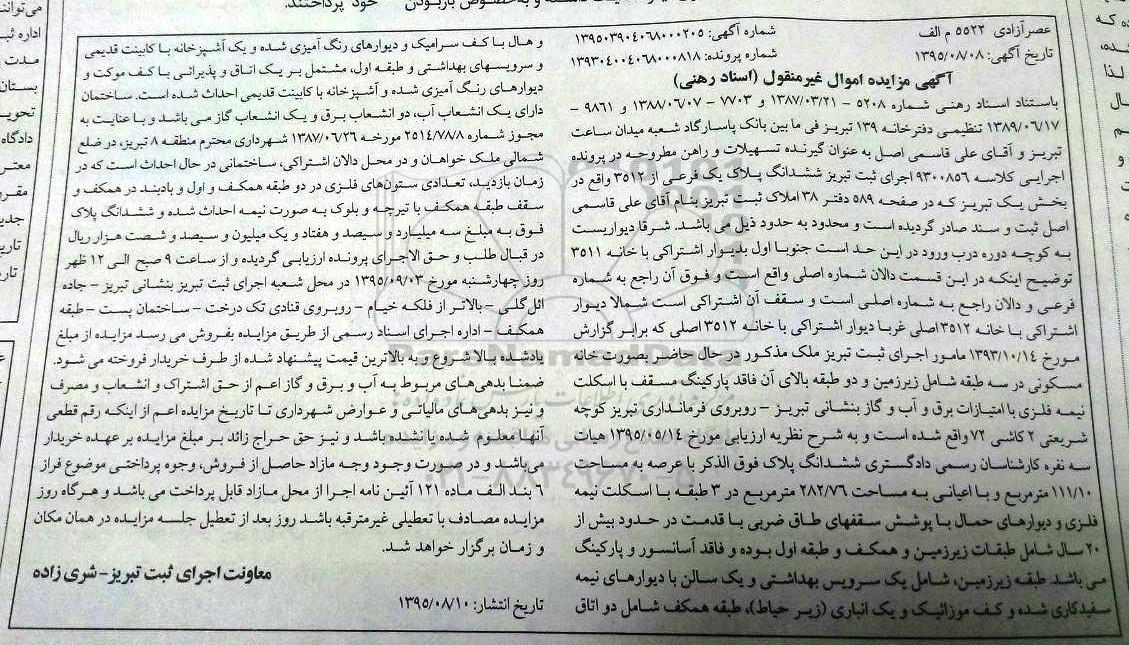 خود پرداختند.
عصرآزادی ۵۵۲۲ م الف
شماره آگهی: ۱۳۹۵۰۳۹۰۴۰۶۸۰۰۰۲۰۵
تاریخ آگهی: ۱۳۹۵/۰۸/۰۸
شماره پرونده: ۱۳۹۳۰۴۰۰۴۰۶۸۰۰۰۸۱۸
آگهی مزایده اموال غیرمنقول (اسناد رهنی)
باستناد اسناد رهنی شماره ۵۲۰۸ - ۱۳۸۷/۰۳/۲۱ و ۷۷۰۳ - ۱۳۸۸/۰۶/۰۷ و ۹۸۶۱ -
۱۳۸۹/۰۶/۱۷ تنظیمی دفترخانه ۱۳۹ تبریز فی ما بین بانک پاسارگاد شعبه میدان ساعت
تبریز و آقای علی قاسمی اصل به عنوان گیرنده تسهیلات و راهن مطروحه در پرونده
اجرایی کلاسه ۹۳۰۰۸۵۶ اجرای ثبت تبریز ششدانگ پلاک یک فرعی از ۳۵۱۲ واقع در
بخش یک تبریز که در صفحه ۵۸۹ دفتر ۳۸ املاک ثبت تبریز بنام آقای علی قاسمی
اصل ثبت و سند صادر گردیده است و محدود به حدود ذیل می باشد. شرقا دیواریست
به کوچه دوره درب ورود در این حد است جنوبا اول بدیوار اشتراکی با خانه ۳۵۱۱
توضیح اینکه در این قسمت دالان شماره اصلی واقع است و فوق آن راجع به شماره
فرعی و دالان راجع به شماره اصلی است و سقف آن اشتراکی است شمالا دیوار
اشتراکی با خانه ۳۵۱۲ اصلی غربا دیوار اشتراکی با خانه ۳۵۱۲ اصلی که برابر گزارش
مورخ ۱۳۹۳/۱۰/۱۴ مامور اجرای ثبت تبریز ملک مذکور در حال حاضر بصورت خانه
مسکونی در سه طبقه شامل زیرزمین و دو طبقه بالای آن فاقد پارکینگ مسقف با اسکلت
نیمه فلزی با امتیازات برق و آب و گاز بنشانی تبریز - روبروی فرمانداری تبریز کوچه
شریعتی ۲ کاشی ۷۲ واقع شده است و به شرح نظریه ارزیابی مورخ ۱۳۹۵/۰۵/۱۴ هیات
سه نفره کارشناسان رسمی دادگستری ششدانگ پلاک فوق الذکر با عرصه به مساحت
۱۱۱/۱۰ مترمربع و با اعیانی به مساحت ۲۸۲/۷۶ مترمربع در ۳ طبقه با اسکلت نیمه
فلزی و دیوارهای حمال با پوشش سقفهای طاق ضربی با قدمت در حدود بیش از
۲۰ سال شامل طبقات زیرزمین و همکف و طبقه اول بوده و فاقد آسانسور و پارکینگ
می باشد. طبقه زیرزمین، شامل یک سرویس بهداشتی و یک سالن با دیوارهای نیمه
سفیدکاری شده و کف موزائیک و یک انباری (زیر حیاط)، طبقه همکف شامل دو اتاق
و هال با کف سرامیک و دیوارهای رنگ آمیزی شده و یک آشپزخانه با کابینت قدیمی
و سرویسهای بهداشتی و طبقه اول، مشتمل بر یک اتاق و پذیرائی با کف موکت و
دیوارهای رنگ آمیزی شده و آشپزخانه با کابینت قدیمی احداث شده است. ساختمان
دارای یک انشعاب آب، دو انشعاب برق و یک انشعاب گاز می باشد و با عنایت به
مجوز شماره ۲۵۱۴/۷۸/۸ مورخه ۱۳۸۷/۰۶/۲۶ شهرداری محترم منطقه ۸ تبریز، در ضلع
شمالی ملک خواهان و در محل دالان اشتراکی، ساختمانی در حال احداث است که در
زمان بازدید، تعدادی ستون‌های فلزی در دو طبقه همکف و اول و بادبند در همکف و
سقف طبقه همکف با تیرچه و بلوک به صورت نیمه احداث شده و ششدانگ پلاک
فوق به مبلغ سه میلیارد و سیصد و هفتاد و یک میلیون و سیصد و شصت هزار ریال
در قبال طلب و حق الاجرای پرونده ارزیابی گردیده و از ساعت ۹ صبح الی ۱۲ ظهر
روز چهارشنبه مورخ ۱۳۹۵/۰۹/۰۳ در محل شعبه اجرای ثبت تبریز بنشانی تبریز - جاده
ائل گلی - بالاتر از فلکه خیام - روبروی قنادی تک درخت - ساختمان پست - طبقه
همکف - اداره اجرای اسناد رسمی از طریق مزایده بفروش می رسد مزایده از مبلغ
یادشده بالا شروع و به بالاترین قیمت پیشنهاد شده از طرف خریدار فروخته می شود.
ضمنا بدهی های مربوط به آب و برق و گاز اعم از حق اشتراک و انشعاب و مصرف
و نیز بدهی‌های مالیاتی و عوارض شهرداری تا تاریخ مزایده اعم از اینکه رقم قطعی
آنها معلوم شده یا نشده باشد و نیز حق حراج زائد بر مبلغ مزایده بر عهده خریدار
می‌باشد و در صورت وجود وجه مازاد حاصل از فروش، وجوه پرداختی موضوع فراز
۶ بند الف ماده ۱۲۱ آئین نامه اجرا از محل مازاد قابل پرداخت می باشد و هرگاه روز
مزایده مصادف با تعطیلی غیرمترقبه باشد روز بعد از تعطیل جلسه مزایده در همان مکان
و زمان برگزار خواهد شد.
معاونت اجرای ثبت تبریز- شری زاده
تاریخ انتشار: ۱۳۹۵/۰۸/۱۰
ParsNamadData